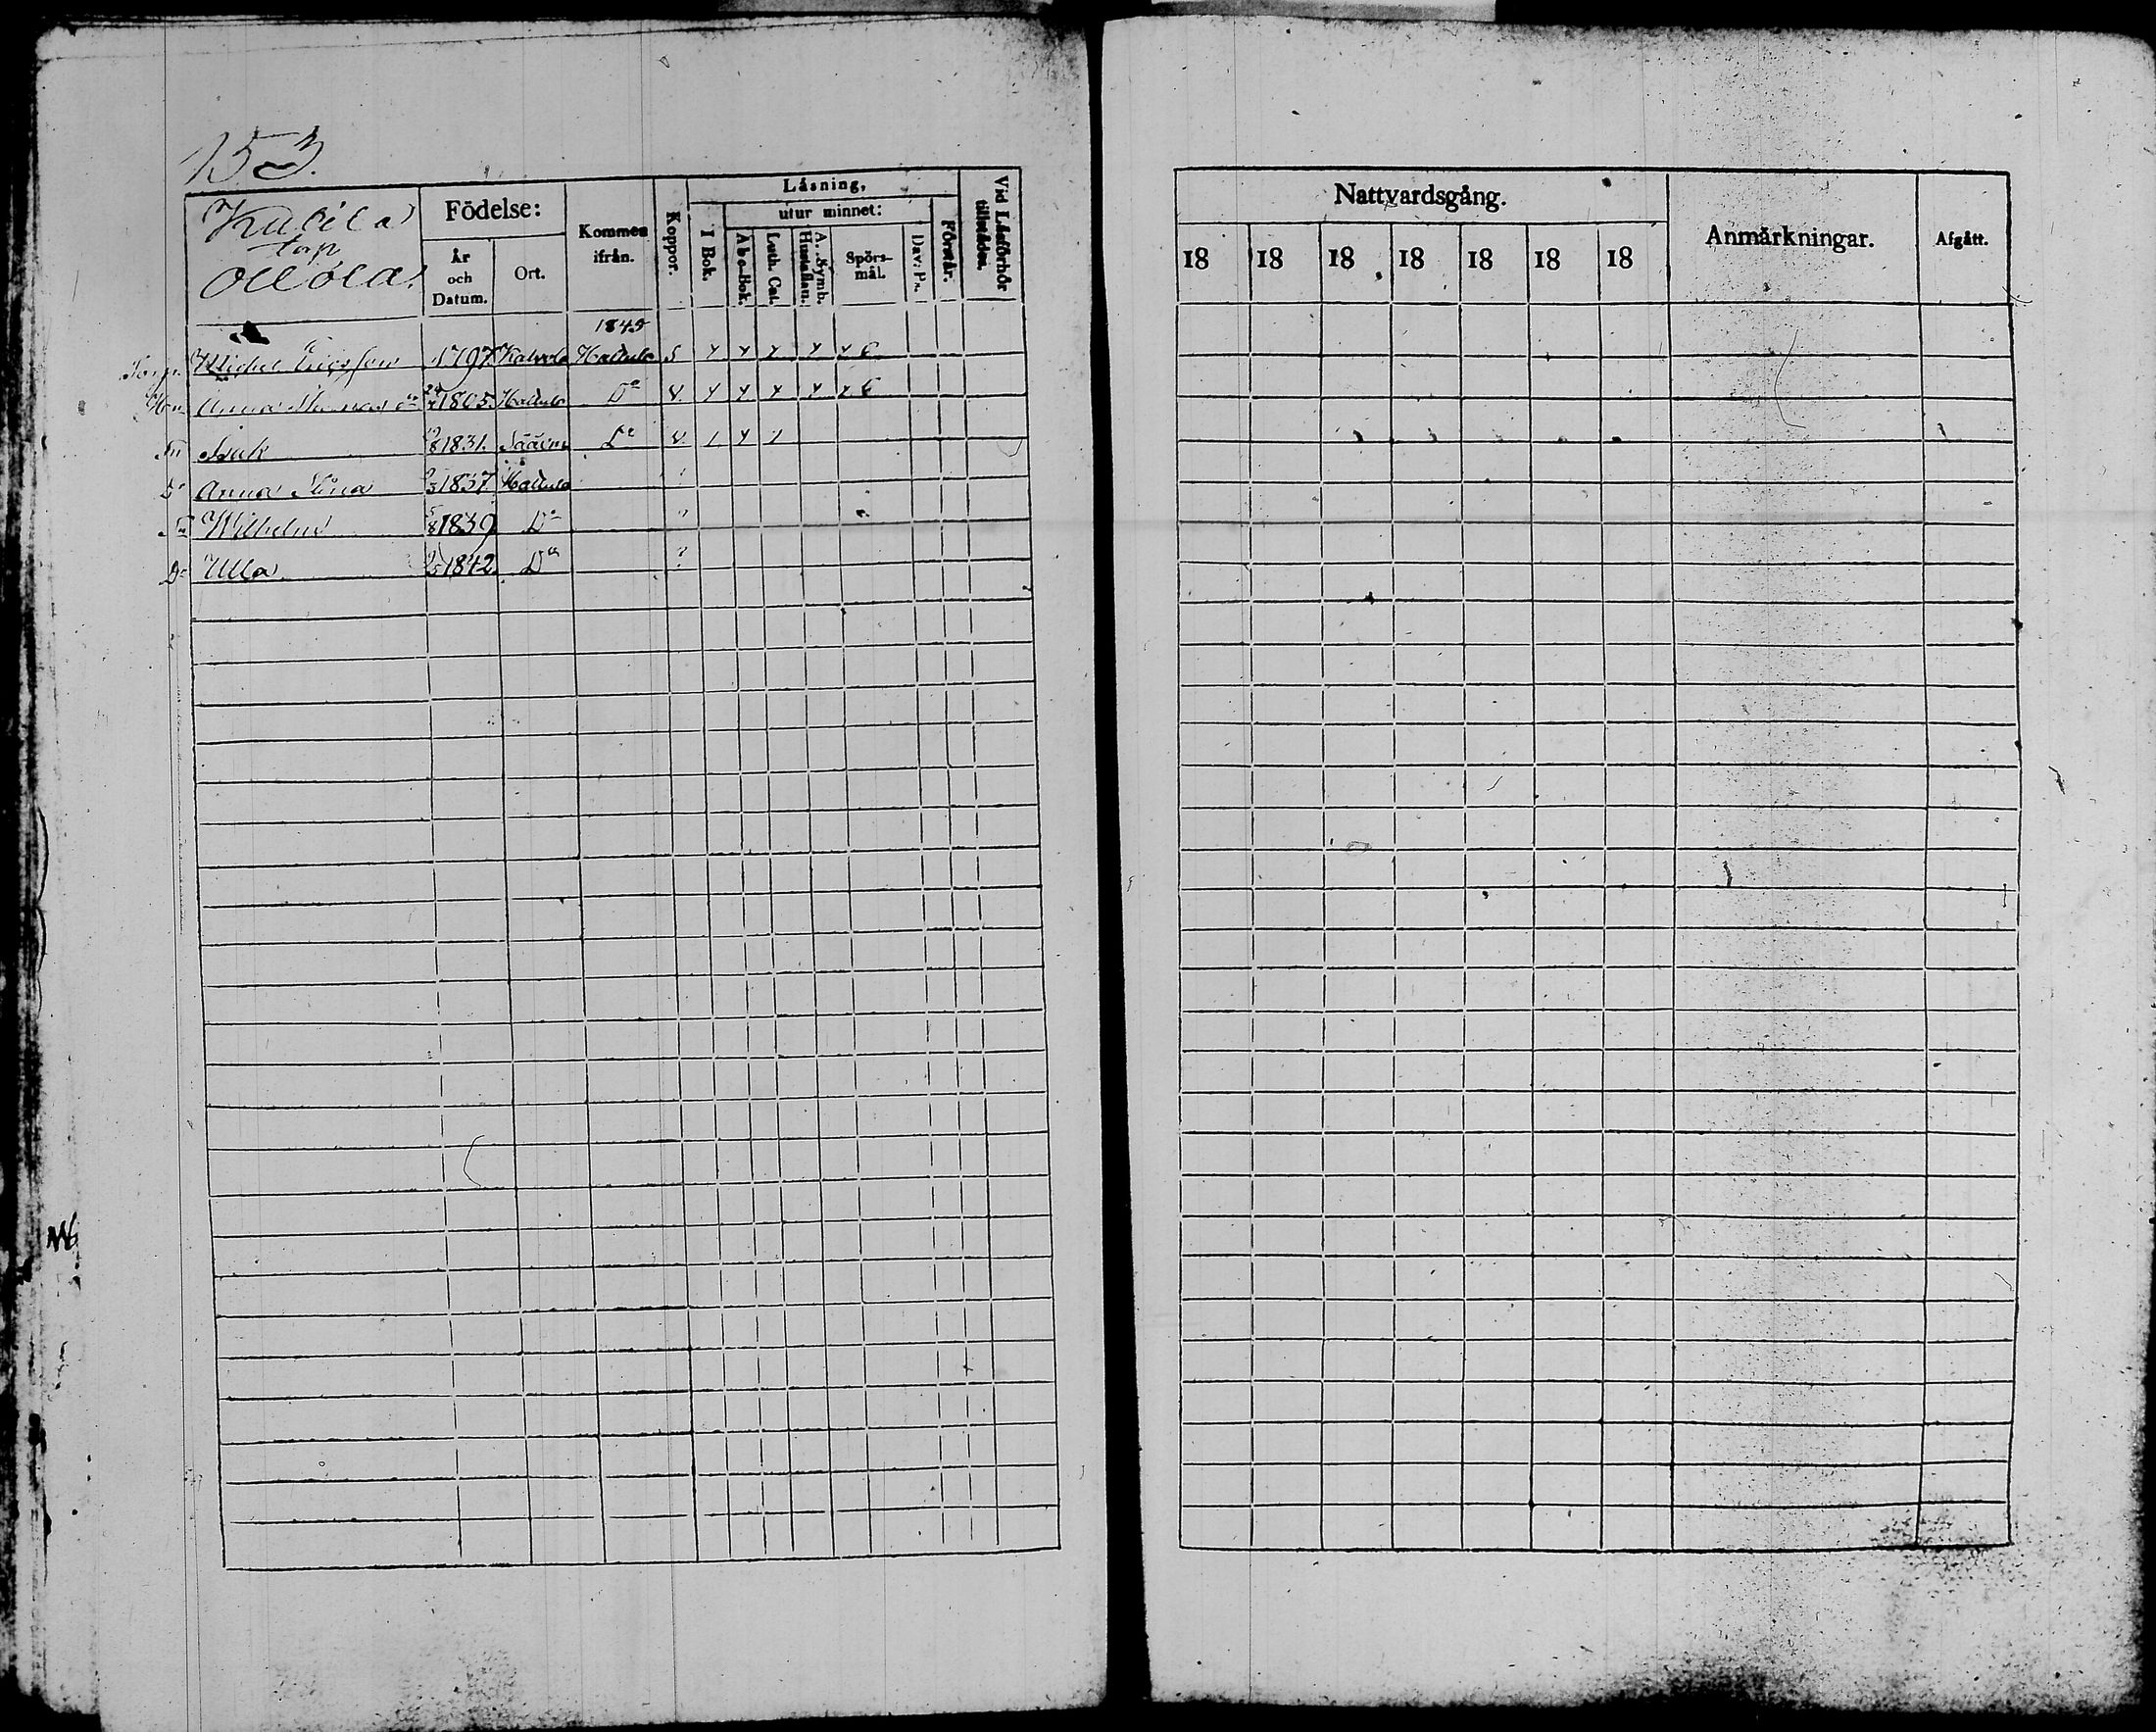 153.
Kulila
torp
Födelse:
År
och
Datum.
Ort.
Kommen
ifrån.
Koppor.
Läsning,
I Bok.
utur minnet:
Abc-Bok.
Luth. Cat.
A. Symb.
Hustaflan.
Spörs-
mål.
Dav. Ps.
Förstår.
Vid Läsförhör
tillstädes.
1845
Torp. Michel Ericsson 1797 Kalvola Hattula
Hu. Anna 1805. Hattula Do
Sn Isak 1831. Do
Dr Anna Stina 1837 Hattula
Sn Wilhelm 1839 Do
Dr Ulla 1842. Do
Nattvardsgång.
18 18 18 18 18 18 18
Anmärkningar.
Afgått.